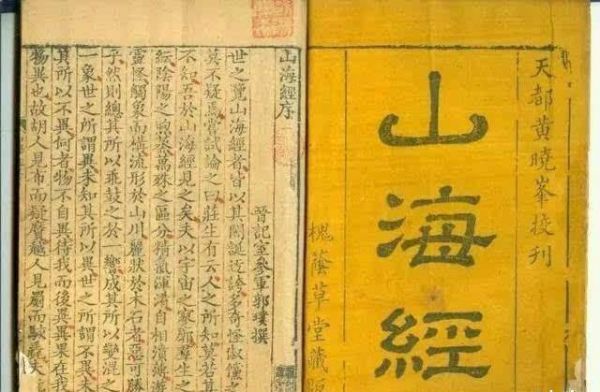 天都黃曉峯挍刊
山海經
槐蔭草堂藏版
山海經序
晉記室參軍郭璞撰
世之覽山海經者皆以其閎誕迂誇多奇怪俶儻
莫不疑焉嘗試論之曰莊生有云人之所知莫若其
不知吾於山海經見之矣夫以宇宙之寥廓羣生之
紜陰陽之煦蒸萬殊之區分精氣渾淆自相濆薄
靈怪觸象而構流形於山川麗狀於木石者惡可勝
乎然則總其所以乖鼓之於一響成其所以變混之
一象世之所謂異未知其所以異世之所謂不異未
其所以不異何者物不自異待我而後異異果在我
物異也故胡人見布而疑黂越人見罽而駭毳